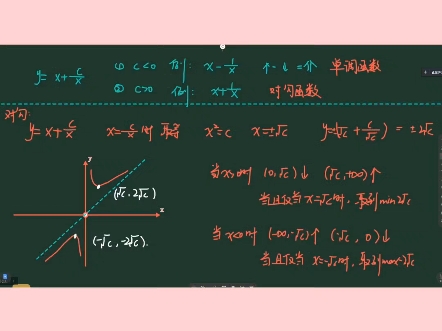 y= x+c/x
① c<0 例: x-1/x ↑-↓=个 单调函数
② c>0 例: x+1/x 对勾函数
对勾:
y= x+c/x x=c/x时 取得 x²=c x=±√c y=(√c+c/√c)=±2√c
当x>0时 (0,√c)↓ (√c,+∞)↑
当且仅当x=√c时,取到min2√c
当x<0时 (-∞,-√c)↑ (-√c, 0)↓
当且仅当 x=-√c时,取到max-2√c
y
(√c, 2√c)
x
(-√c, -2√c).